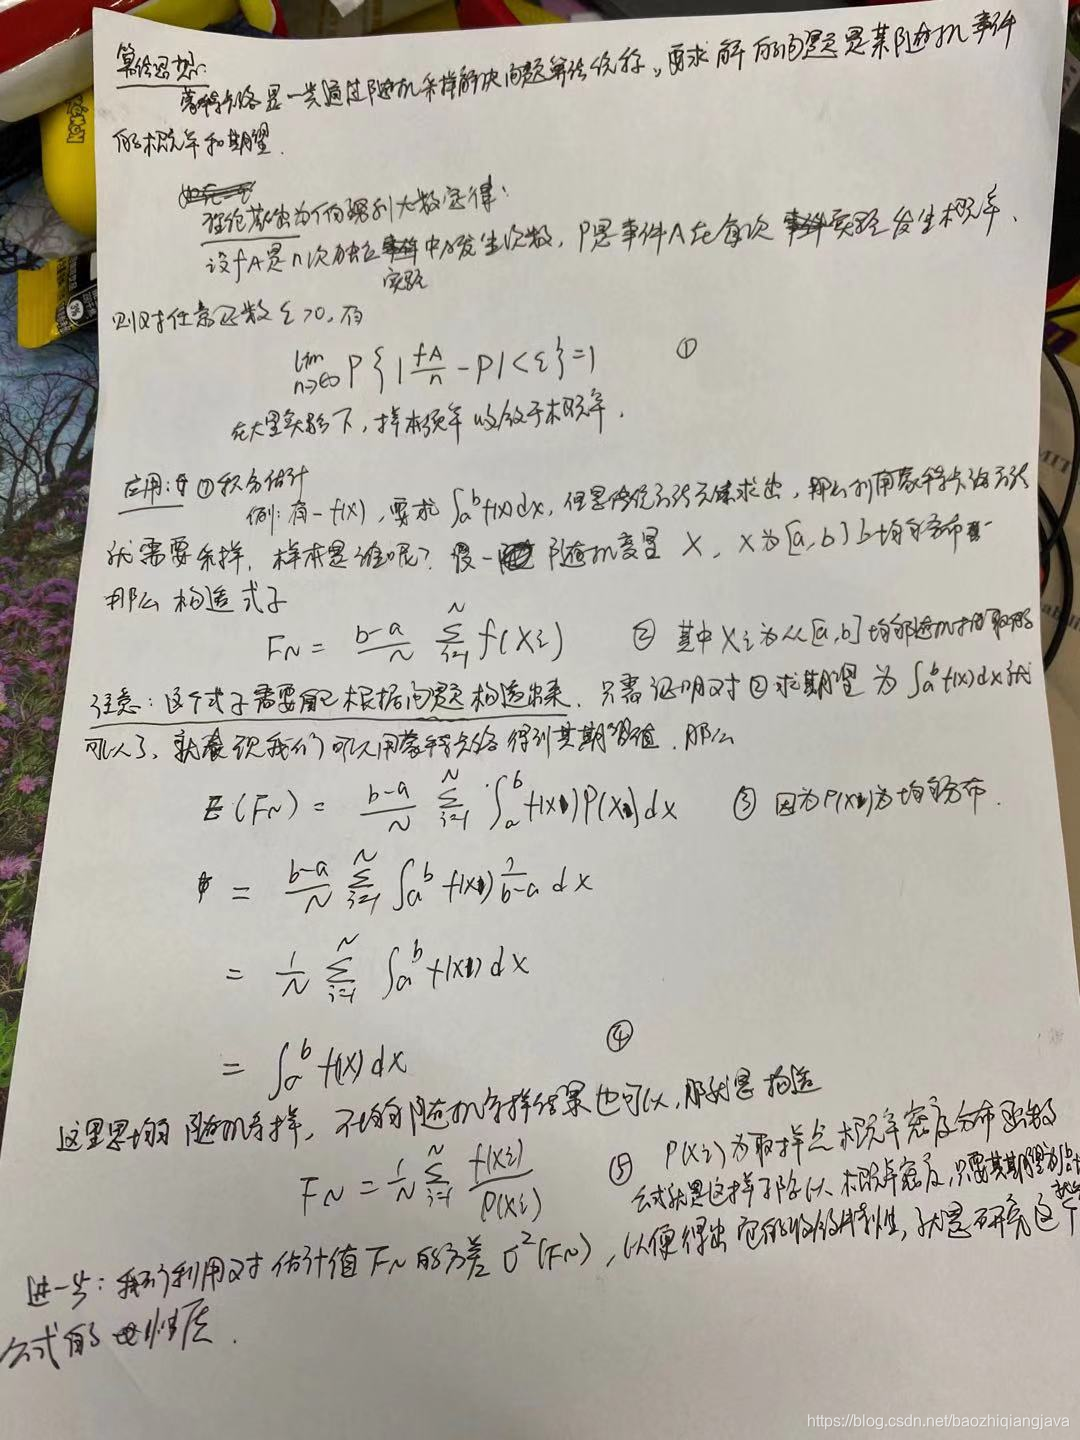 算法思想:
蒙特卡洛是一类通过随机采样解决问题算法统称，要求解的问题是某随机事件
的概率和期望.
理论基础为伯努利大数定律:
设fA是n次独立实验中A发生次数，P是事件A在每次实验发生概率、
则对任意正数ε>0,有
lim n→∞ P{|fA/n - P|<ε}=1 ①
在大量实验下，样本频率收敛于概率.
应用: ①积分估计
例: 有一f(x), 要求∫a^b f(x)dx, 但是传统方法无法求出, 那么利用蒙特卡洛方法
就需要采样, 样本是谁呢? 设一随机变量X, X为[a,b]上均匀分布
那么构造式子
FN = (b-a)/N Σ(i=1→N) f(Xi) ② 其中Xi为从[a,b]均匀随机抽取
注意:这个式子需要自己根据问题构造出来. 只需证明对②求期望为∫a^b f(x)dx就
可以了、就表现我们可以用蒙特卡洛得到其期望值. 那么
E(FN) = (b-a)/N Σ(i=1→N) ∫a^b f(x)P(x)dx ③ 因为P(x)为均匀分布.
= (b-a)/N Σ(i=1→N) ∫a^b f(x) 1/(b-a) dx
= 1/N Σ(i=1→N) ∫a^b f(x)dx
= ∫a^b f(x)dx ④
这里是均匀随机采样, 不均匀随机采样结果也可以, 那就是构造
FN = 1/N Σ(i=1→N) f(Xi)/P(Xi) ⑤ P(Xi)为取样点概率密度分布函数
公式就是这样子除以概率密度, 只要其期望为
进一步: 我们利用对估计值FN的方差σ²(FN), 以便得出它的收敛特性, 就是研究这个
公式的性质.
https://blog.csdn.net/baozhiqiangjava